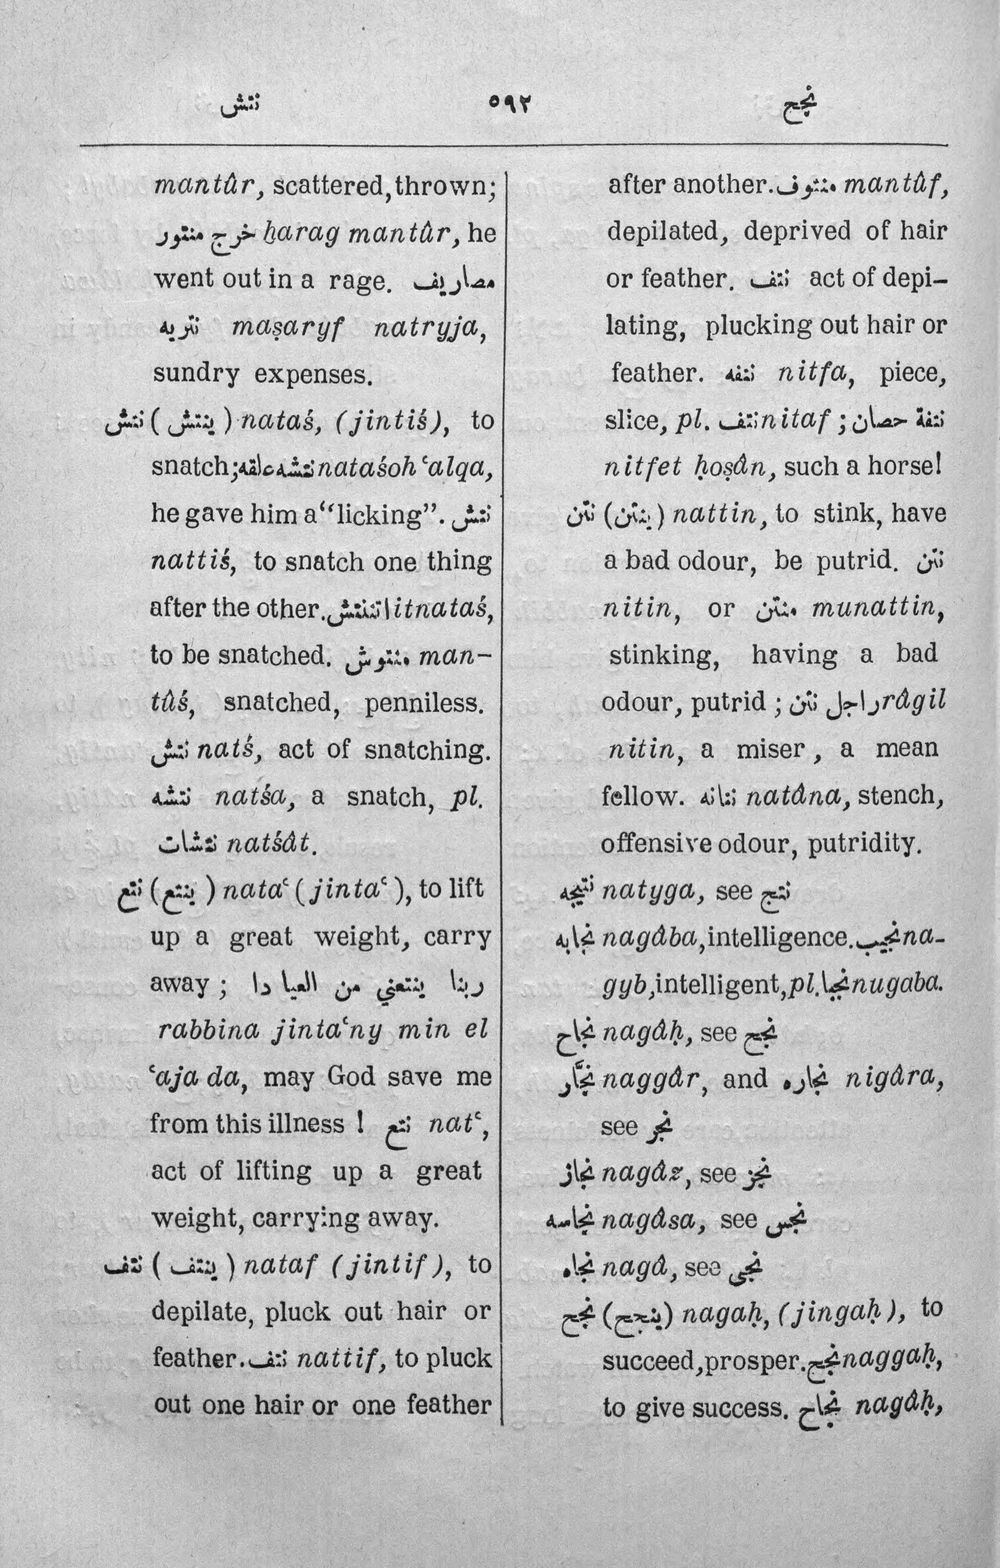 نتش ٥٩٢ نجح
mantûr, scattered, thrown;
خرج منتور ḫarag mantûr, he
went out in a rage. مصاريف
نتريه maṣaryf natryja,
sundry expenses.
نتش (ينتش) nataś, (jintiś), to
snatch; نتشه علقه nataśoh ʿalqa,
he gave him a “licking”. نتش
nattiś, to snatch one thing
after the other. اتنتش itnataś,
to be snatched. منتوش man-
tûś, snatched, penniless.
نتش natś, act of snatching.
نتشه natśa, a snatch, pl.
نتشات natśât.
نتع (ينتع) nataʿ (jintaʿ), to lift
up a great weight, carry
away; ربنا ينتعني من العيا دا
rabbina jintaʿny min el
ʿaja da, may God save me
from this illness ! نتع natʿ,
act of lifting up a great
weight, carrying away.
نتف (ينتف) nataf (jintif), to
depilate, pluck out hair or
feather. نتف nattif, to pluck
out one hair or one feather
after another. منتوف mantûf,
depilated, deprived of hair
or feather. نتف act of depi-
lating, plucking out hair or
feather. نتفه nitfa, piece,
slice, pl. نتف nitaf; نتفة حصان
nitfet ḥoṣân, such a horse!
نتن (ينتن) nattin, to stink, have
a bad odour, be putrid. نتن
nitin, or منتن munattin,
stinking, having a bad
odour, putrid; راجل نتن râgil
nitin, a miser, a mean
fellow. نتانه natâna, stench,
offensive odour, putridity.
نتيجه natyga, see نتج
نجابه nagâba, intelligence. نجيب na-
gyb, intelligent, pl. نجبا nugaba.
نجاح nagâḥ, see نجح
نجّار naggâr, and نجاره nigâra,
see نجر
نجاز nagâz, see نجز
نجاسه nagâsa, see نجس
نجاه nagâ, see نجى
نجح (ينجح) nagaḥ, (jingaḥ), to
succeed, prosper. نجح naggaḥ,
to give success. نجاح nagâḥ,